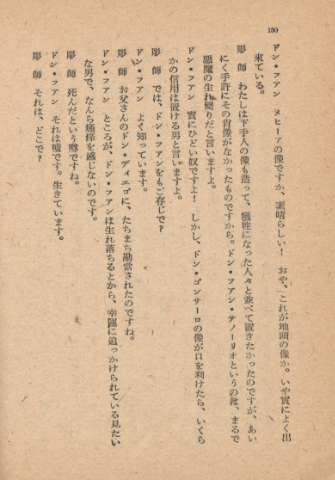 130
ドン・フアン　メヒーアの像ですか、素晴らしい！　おや、これが地頭の像か。いや實によく出
来ている。
彫　師　わたしは下手人の像も造って、犠牲になった人々と並べて置きたかったのですが、あい
にく手許にその肖像がなかったものですから。ドン・フアン・テノーリオというのは、まるで
惡魔の生れ變りだと言いますよ。
ドン・フアン　實にひどい奴ですよ！　しかし、ドン・ゴンサーロの像が口を利けたら、いくら
かの信用は置ける男と言いますよ。
彫　師　では、ドン・フアンをもご存じで？
ドン・フアン　よく知っています。
彫　師　お父さんのドン・ディエゴに、たちまち勘當されたのですね。
ドン・フアン　ところが、ドン・フアンは生れ落ちるとから、幸運に追っかけられている見たい
な男で、なんら痛痒を感じないのです。
彫　師　死んだという噂ですね。
ドン・フアン　それは嘘です。生きています。
彫　師　それは、どこで？